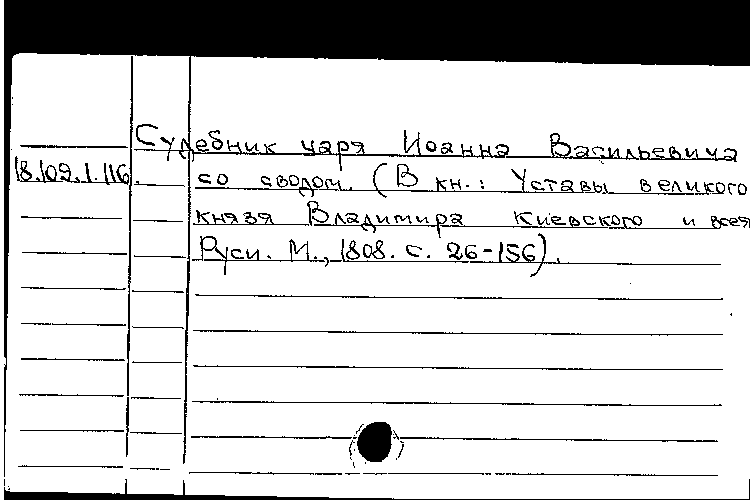 Судебник царя Иоанна Васильевича
18.109.1.116. со сводом. (В кн.: Уставы великого
князя Владимира Киевского и всея
Руси. М., 1808. с. 26-156).